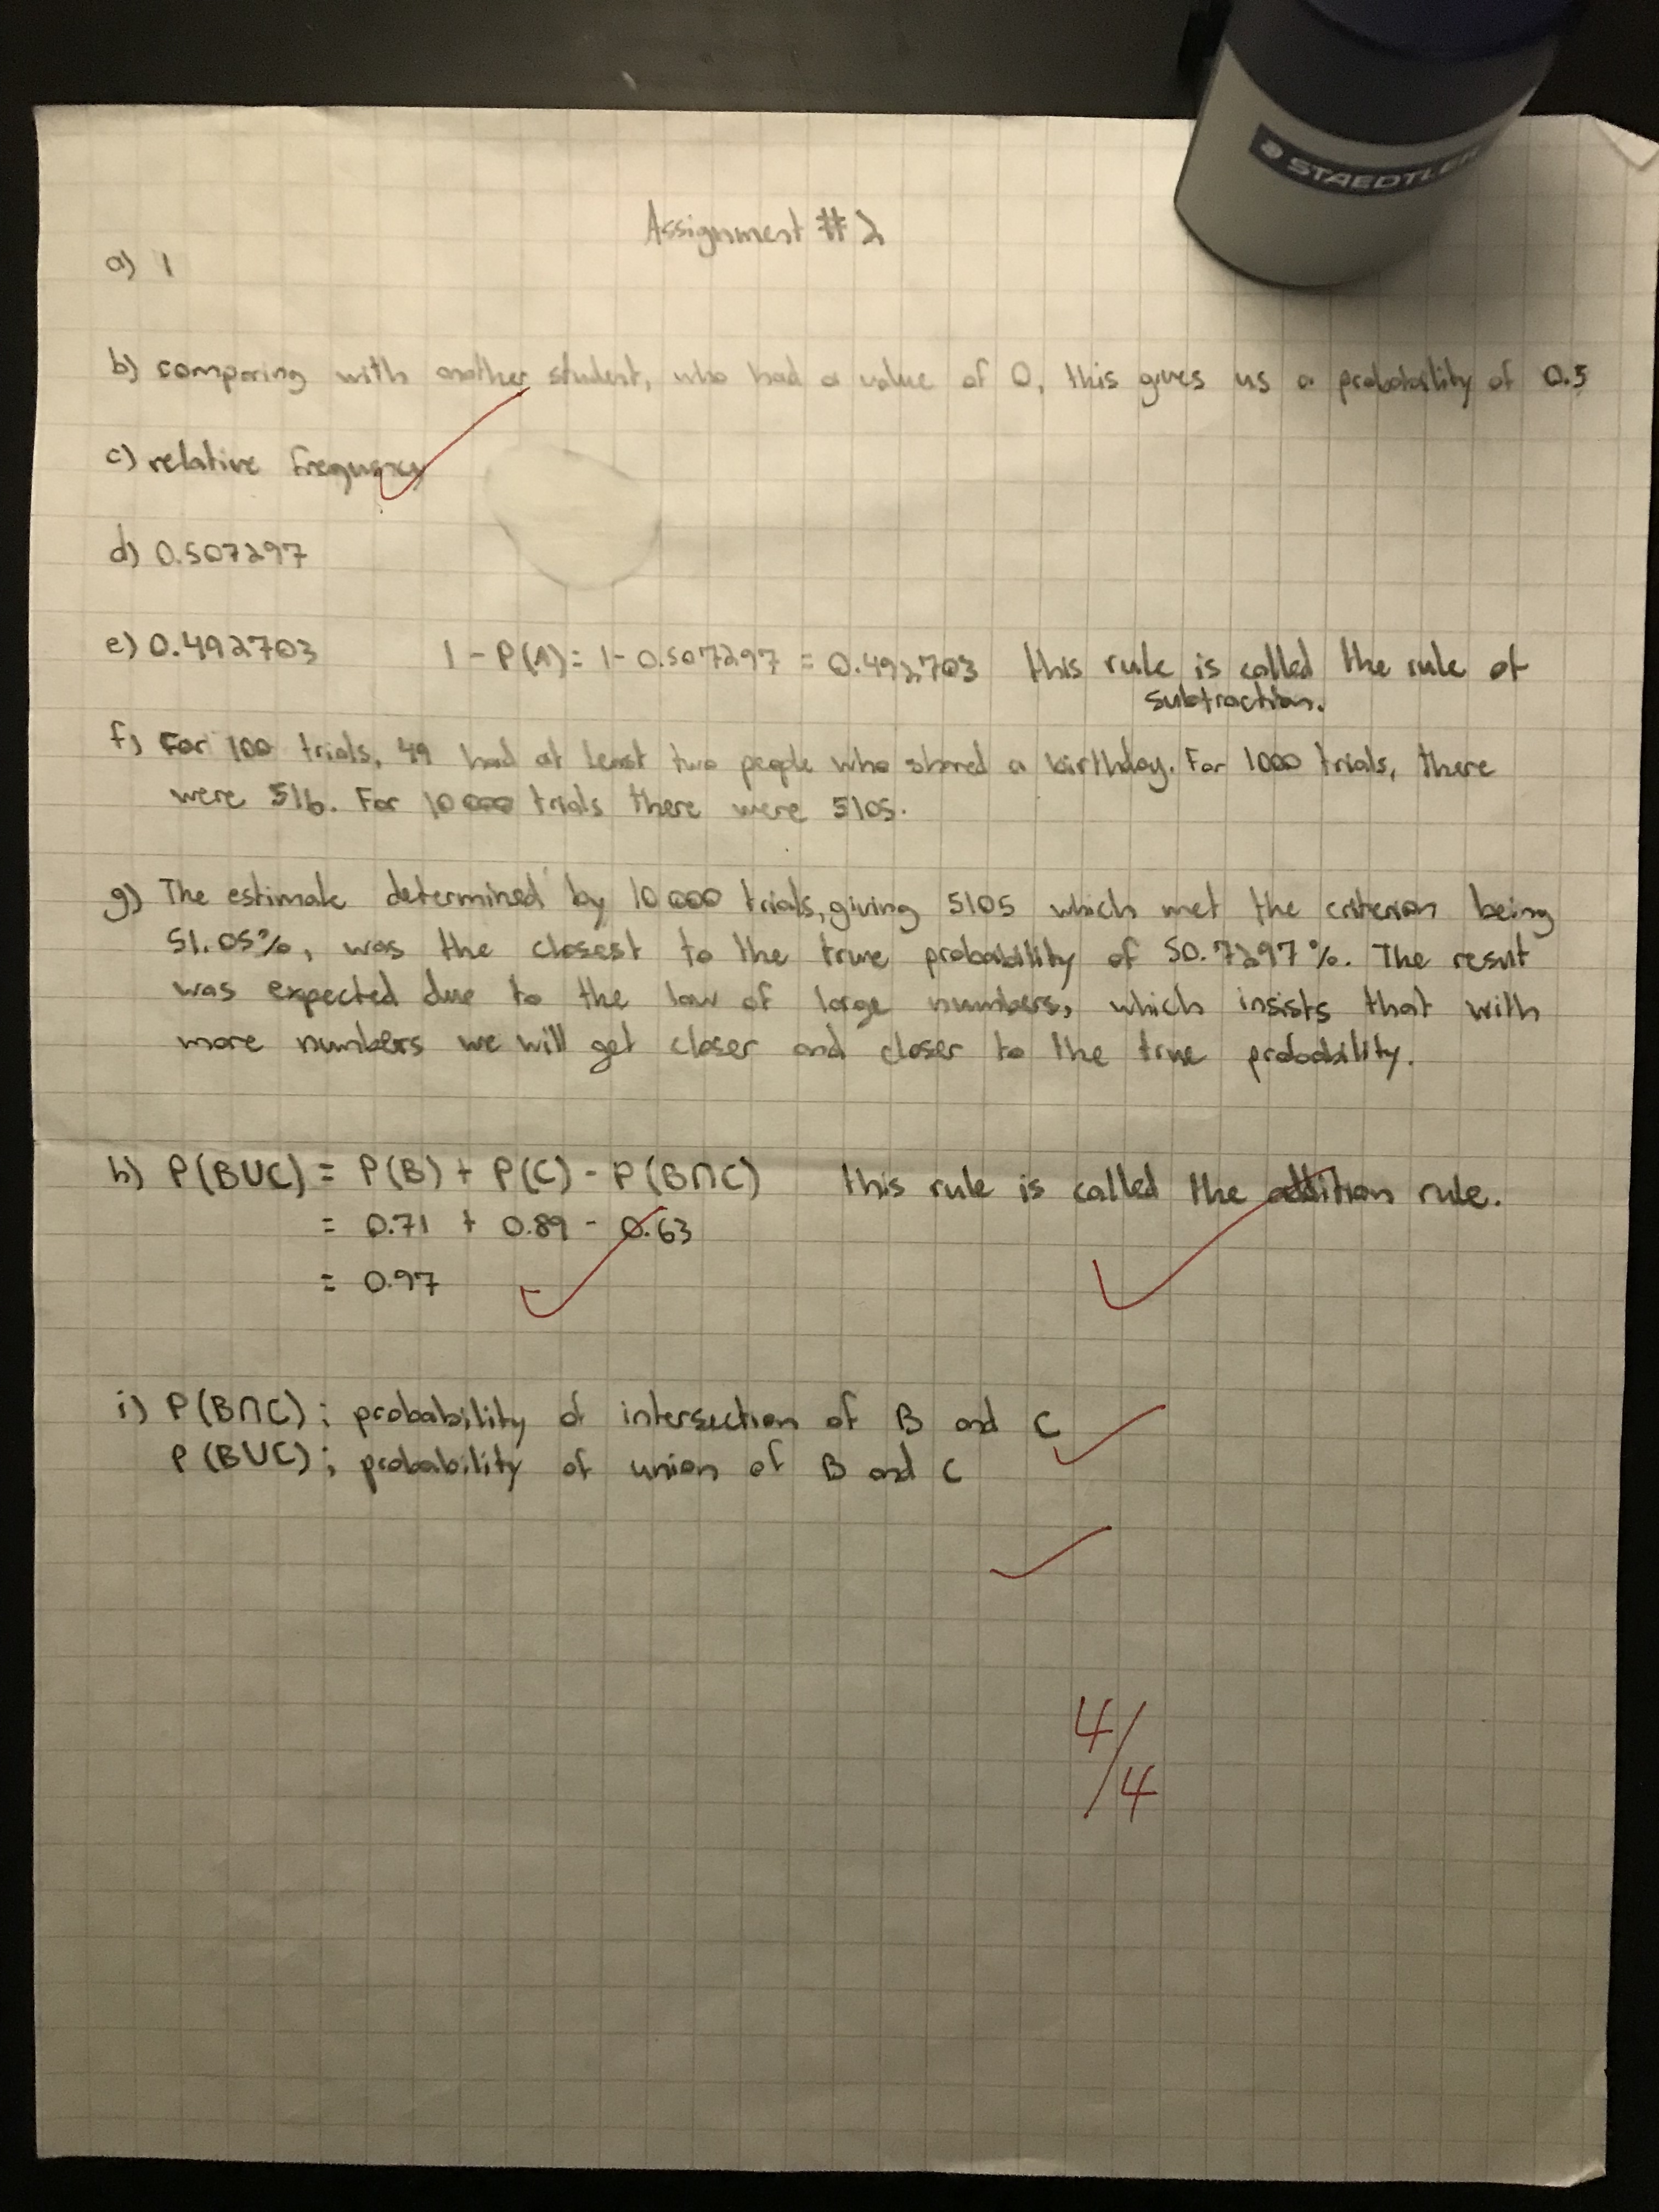 STAEDTLER
Assignment #2
a) 1
b) comparing with another student, who had a value of 0, this gives us a probability of 0.5
c) relative frequency
d) 0.507297
e) 0.492703 1 - P(A) = 1 - 0.507297 = 0.492703 this rule is called the rule of
subtraction.
f) For 100 trials, 49 had at least two people who shared a birthday. For 1000 trials, there
were 516. For 10 000 trials there were 5105.
g) The estimate determined by 10 000 trials, giving 5105 which met the criterion being
51.05%, was the closest to the true probability of 50.7297%. The result
was expected due to the law of large numbers, which insists that with
more numbers we will get closer and closer to the true probability.
h) P(B∪C) = P(B) + P(C) - P(B∩C) this rule is called the addition rule.
= 0.71 + 0.89 - 0.63
= 0.97
i) P(B∩C); probability of intersection of B and C
P(B∪C); probability of union of B and C
4/4